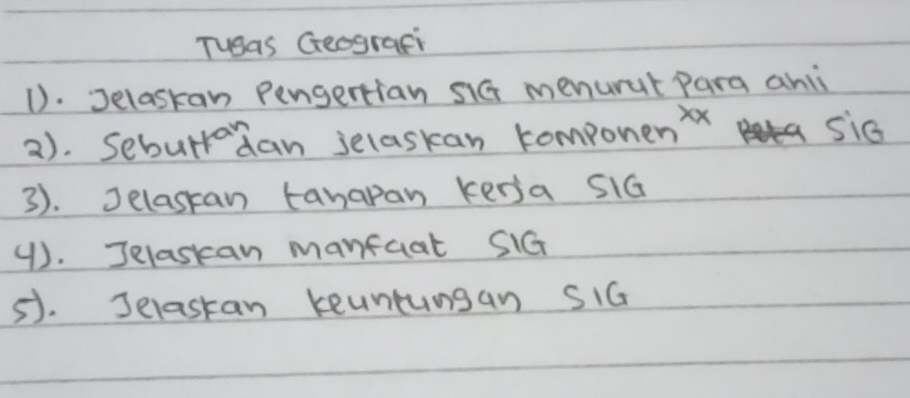 Tugas Geografi
1). Jelaskan Pengertian SIG menurut Para ahli
2). Sebutkan dan jelaskan komponen xx SIG
3). Jelaskan tahapan kerja SIG
4). Jelaskan manfaat SIG
5). Jelaskan keuntungan SIG